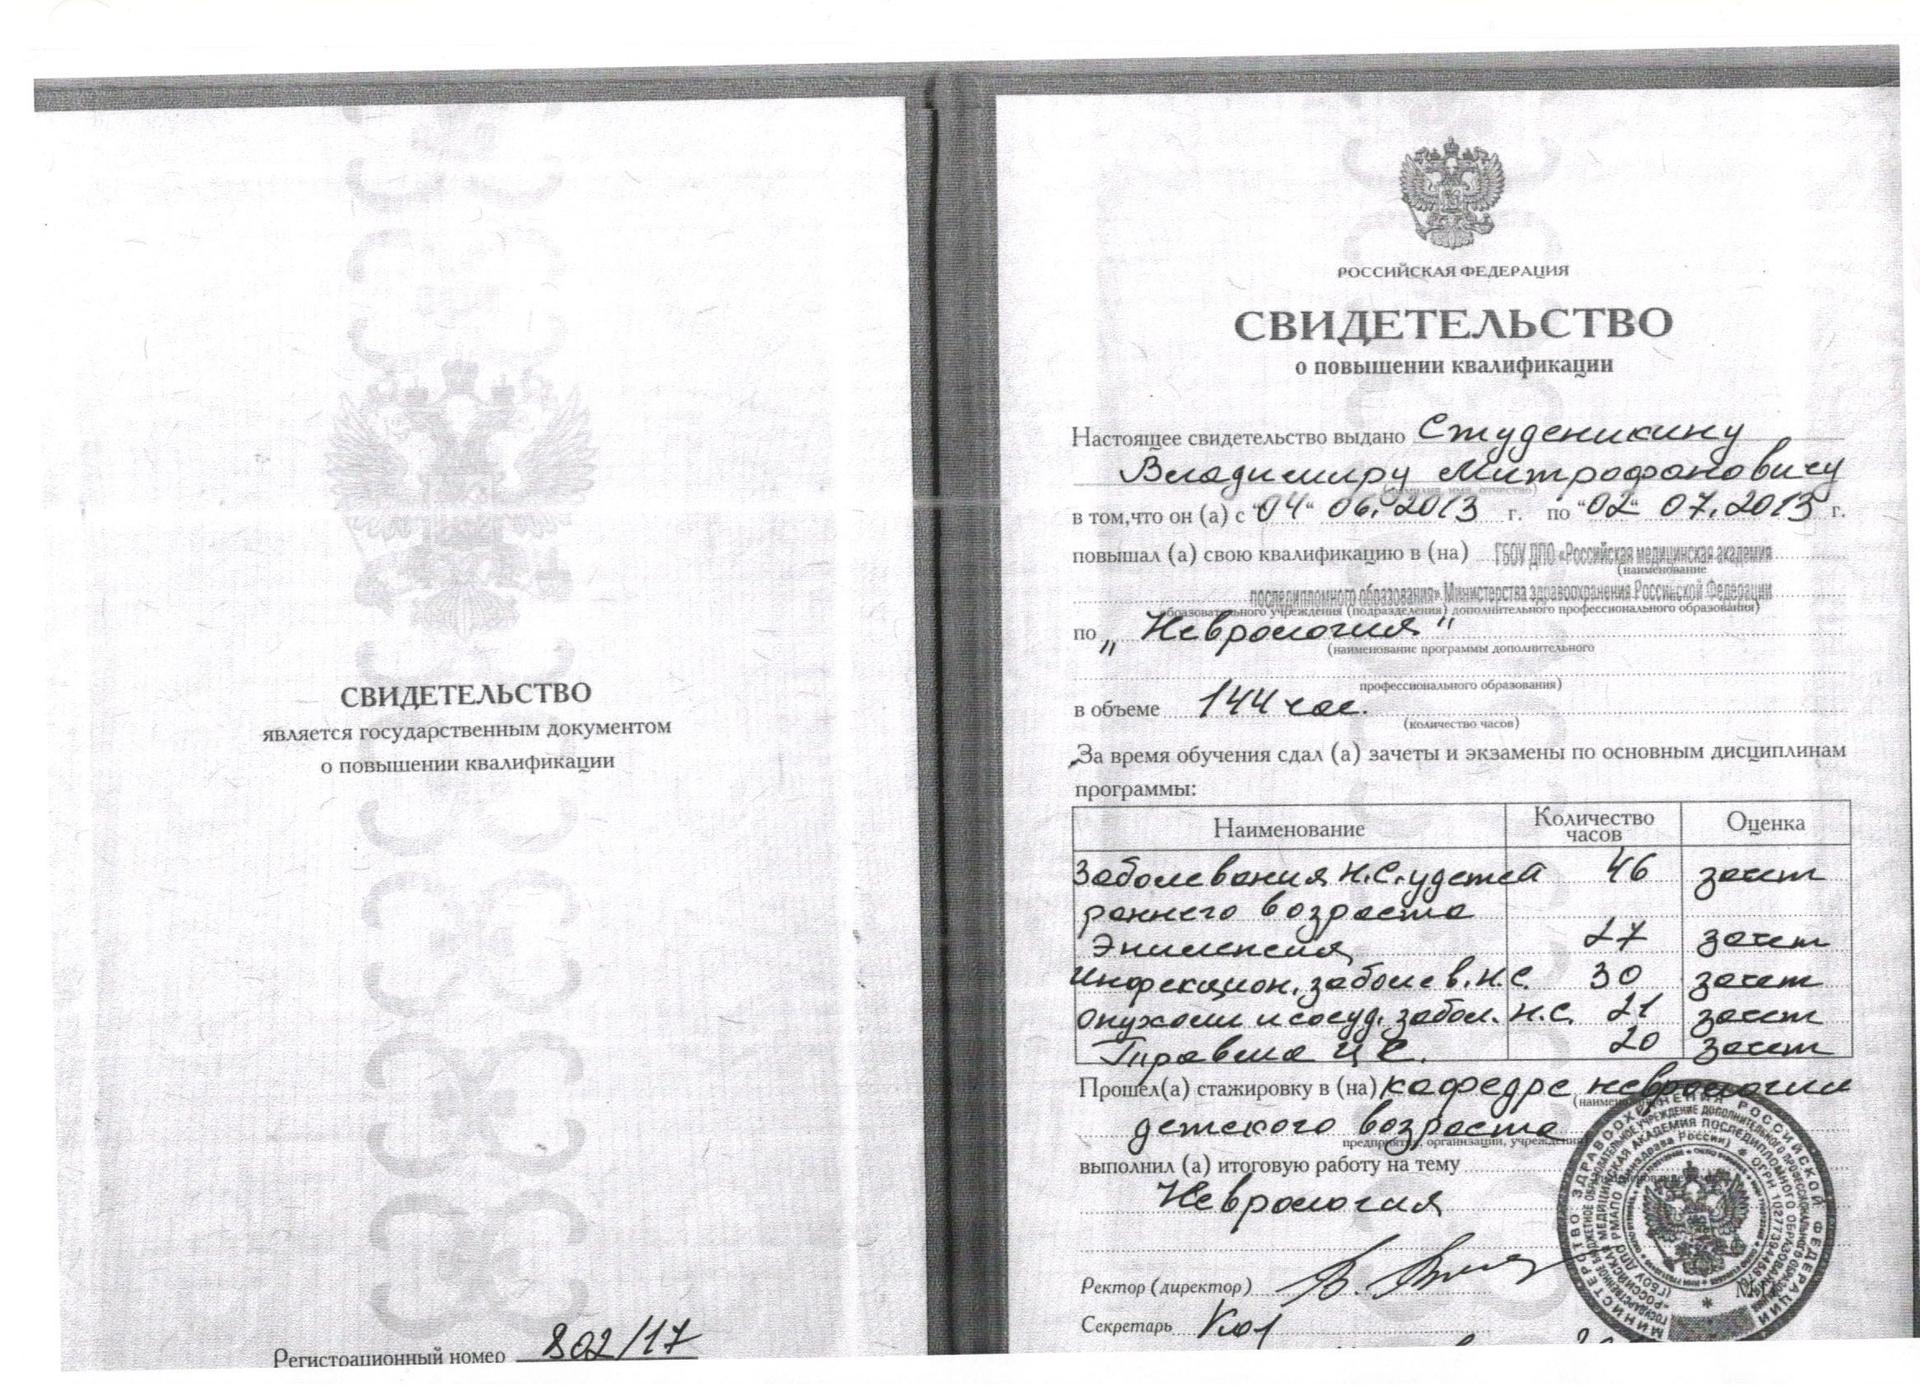 СВИДЕТЕЛЬСТВО
является государственным документом
о повышении квалификации
Регистрационный номер 802/17
РОССИЙСКАЯ ФЕДЕРАЦИЯ
СВИДЕТЕЛЬСТВО
о повышении квалификации
Настоящее свидетельство выдано Студеникину
Владимиру Митрофановичу
(фамилия, имя, отчество)
в том,что он (а) с "04" 06. 2013 г. по "02" 07. 2013 г.
повышал (а) свою квалификацию в (на) ГБОУ ДПО «Российская медицинская академия
(наименование
последипломного образования» Министерства здравоохранения Российской Федерации
образовательного учреждения (подразделения) дополнительного профессионального образования)
по „Неврология"
(наименование программы дополнительного
профессионального образования)
в объеме 144 час.
(количество часов)
За время обучения сдал (а) зачеты и экзамены по основным дисциплинам
программы:
Наименование Количество часов Оценка
Заболевания н.с. у детей 46 зачет
раннего возраста
Эпилепсия 27 зачет
Инфекцион. заболев. н.с. 30 зачет
Опухоли и сосуд. забол. н.с. 21 зачет
Травма ЦНС. 20 зачет
Прошел(а) стажировку в (на) кафедре неврологии
детского возраста
предприятия, организации, учреждения)
выполнил (а) итоговую работу на тему
Неврология
Ректор (директор)
Секретарь
МИНИСТЕРСТВО ЗДРАВООХРАНЕНИЯ РОССИЙСКОЙ ФЕДЕРАЦИИ